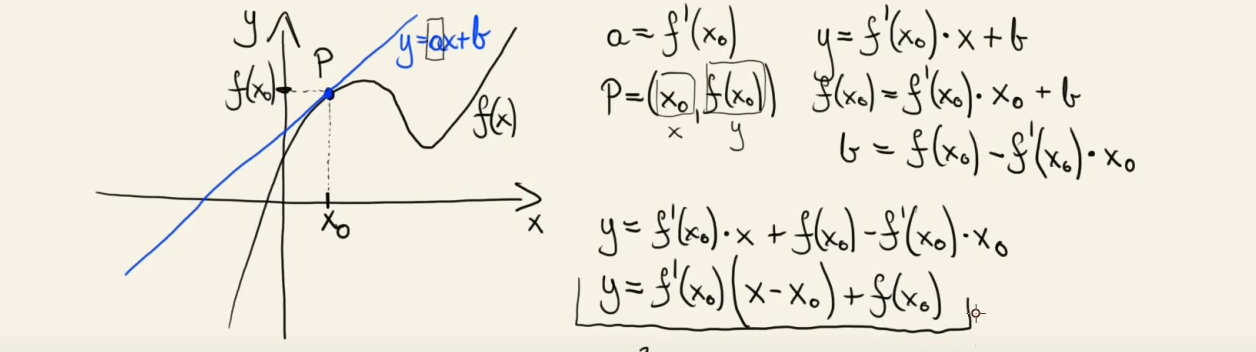 y
y=ax+b
P
f(x₀)
f(x)
x₀
x
a=f'(x₀)
P=(x₀, f(x₀))
x y
y=f'(x₀)·x+b
f(x₀)=f'(x₀)·x₀+b
b=f(x₀)-f'(x₀)·x₀
y=f'(x₀)·x+f(x₀)-f'(x₀)·x₀
y=f'(x₀)(x-x₀)+f(x₀)